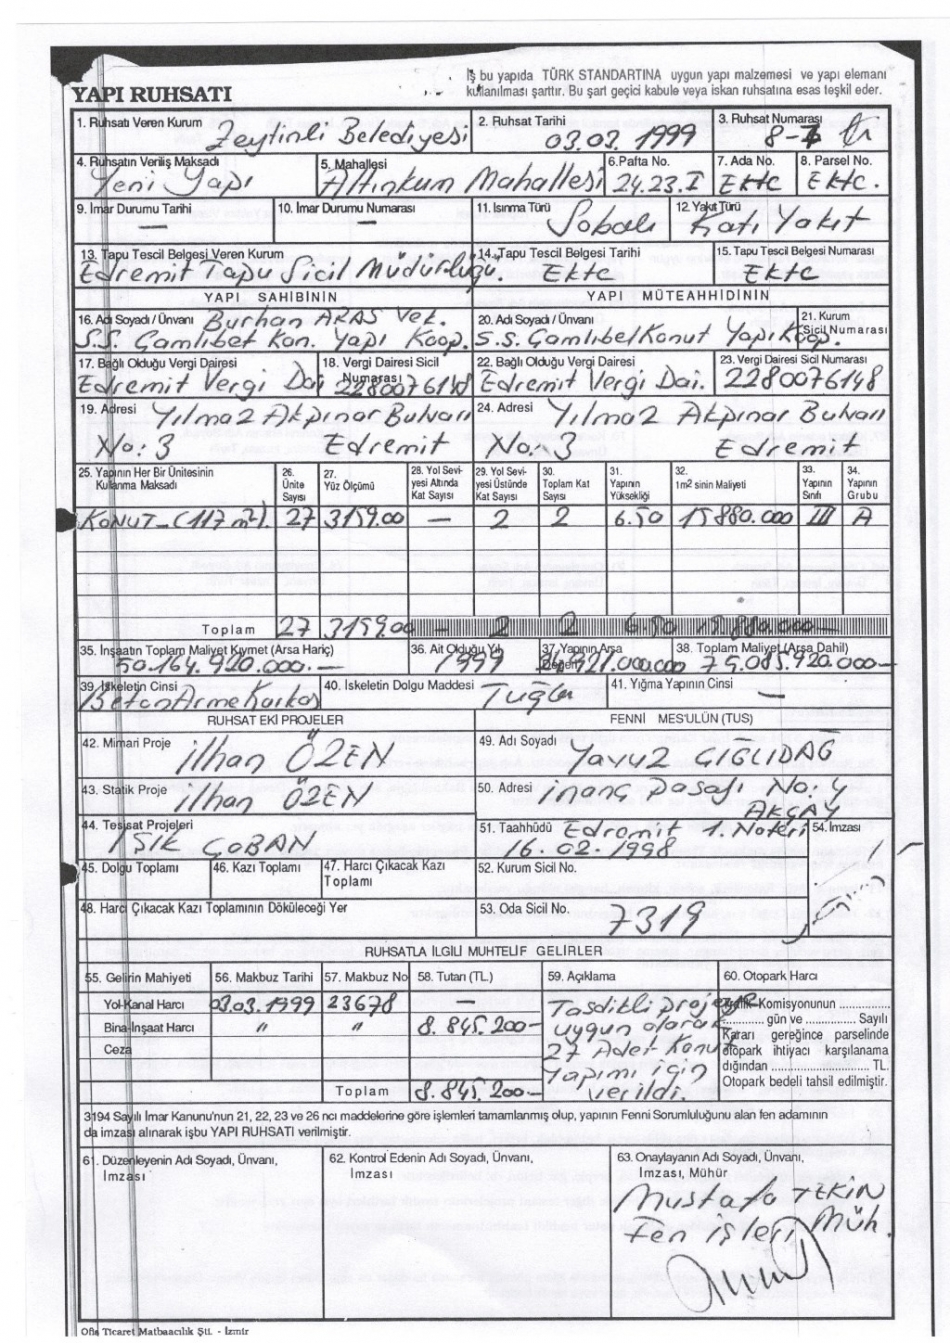 İş bu yapıda TÜRK STANDARTINA uygun yapı malzemesi ve yapı elemanı
YAPI RUHSATI kullanılması şarttır. Bu şart geçici kabule veya iskan ruhsatına esas teşkil eder.
1. Ruhsatı Veren Kurum 2. Ruhsat Tarihi 3. Ruhsat Numarası
Zeytinli Belediyesi 03.03.1999
4. Ruhsatın Veriliş Maksadı 5. Mahallesi 6.Pafta No. 7. Ada No. 8. Parsel No.
Yeni Yapı Altınkum Mahallesi 24.23.I Ektc Ektc.
9. İmar Durumu Tarihi 10. İmar Durumu Numarası 11. Isınma Türü 12. Yakıt Türü
— — Sobalı Katı Yakıt
13. Tapu Tescil Belgesi Veren Kurum 14. Tapu Tescil Belgesi Tarihi 15. Tapu Tescil Belgesi Numarası
Edremit Tapu Sicil Müdürlüğü. Ektc Ektc
YAPI SAHİBİNİN YAPI MÜTEAHHİDİNİN
16. Adı Soyadı / Ünvanı Burhan ARAS Vek. 20. Adı Soyadı / Ünvanı 21. Kurum Sicil Numarası
S.S. Çamlıbel Kon. Yapı Koop. S.S. Çamlıbel Konut Yapı Koop.
17. Bağlı Olduğu Vergi Dairesi 18. Vergi Dairesi Sicil Numarası 22. Bağlı Olduğu Vergi Dairesi 23. Vergi Dairesi Sicil Numarası
Edremit Vergi Dai 2280076148 Edremit Vergi Dai. 2280076148
19. Adresi Yılmaz Akpınar Bulvarı 24. Adresi Yılmaz Akpınar Bulvarı
No: 3 Edremit No: 3 Edremit
25. Yapının Her Bir Ünitesinin Kullanma Maksadı 26. Ünite Sayısı 27. Yüz Ölçümü 28. Yol Seviyesi Altında Kat Sayısı 29. Yol Seviyesi Üstünde Kat Sayısı 30. Toplam Kat Sayısı 31. Yapının Yüksekliği 32. 1m2 sinin Maliyeti 33. Yapının Sınıfı 34. Yapının Grubu
KONUT-(117 m²). 27 3159.00 — 2 2 6.50 15.880.000 III A
Toplam 27 3159.00 — 2 2 6.50 15.880.000—
35. İnşaatın Toplam Maliyet Kıymet (Arsa Hariç) 36. Ait Olduğu Yıl 37. Yapının Arsa Değeri 38. Toplam Maliyet (Arsa Dahil)
50.164.920.000.— 1999
39. İskeletin Cinsi 40. İskeletin Dolgu Maddesi 41. Yığma Yapının Cinsi
BetonArme Karkas Tuğla —
RUHSAT EKİ PROJELER FENNİ MES'ULÜN (TUS)
42. Mimari Proje İlhan ÖZEN 49. Adı Soyadı Yavuz ÇIĞLIDAĞ
43. Statik Proje İlhan ÖZEN 50. Adresi İnanç Pasajı No: 4
AKÇAY
44. Tesisat Projeleri 51. Taahhüdü Edremit 1. Noteri 54. İmzası
IŞIK ÇOBAN 16-02-1998
45. Dolgu Toplamı 46. Kazı Toplamı 47. Harcı Çıkacak Kazı Toplamı 52. Kurum Sicil No.
48. Harcı Çıkacak Kazı Toplamının Döküleceği Yer 53. Oda Sicil No. 7319
RUHSATLA İLGİLİ MUHTELİF GELİRLER
55. Gelirin Mahiyeti 56. Makbuz Tarihi 57. Makbuz No 58. Tutarı (TL.) 59. Açıklama 60. Otopark Harcı
Yol-Kanal Harcı 03.03.1999 23678 — Tasdikli projeye Komisyonunun ...............
Bina-İnşaat Harcı " " 8.845.200— uygun olarak ............... gün ve ............ Sayılı
Ceza 27 Adet Konut Kararı gereğince parselinde
yapımı için otopark ihtiyacı karşılanama
verildi. dığından ..................... TL.
Toplam 8.845.200— Otopark bedeli tahsil edilmiştir.
3194 Sayılı İmar Kanunu'nun 21, 22, 23 ve 26 ncı maddelerine göre işlemleri tamamlanmış olup, yapının Fenni Sorumluluğunu alan fen adamının
da imzası alınarak işbu YAPI RUHSATI verilmiştir.
61. Düzenleyenin Adı Soyadı, Ünvanı, İmzası 62. Kontrol Edenin Adı Soyadı, Ünvanı, İmzası 63. Onaylayanın Adı Soyadı, Ünvanı, İmzası, Mühür
Mustafa TEKİN
Fen İşleri Müh.
Ofis Ticaret Matbaacılık Şti. - İzmir